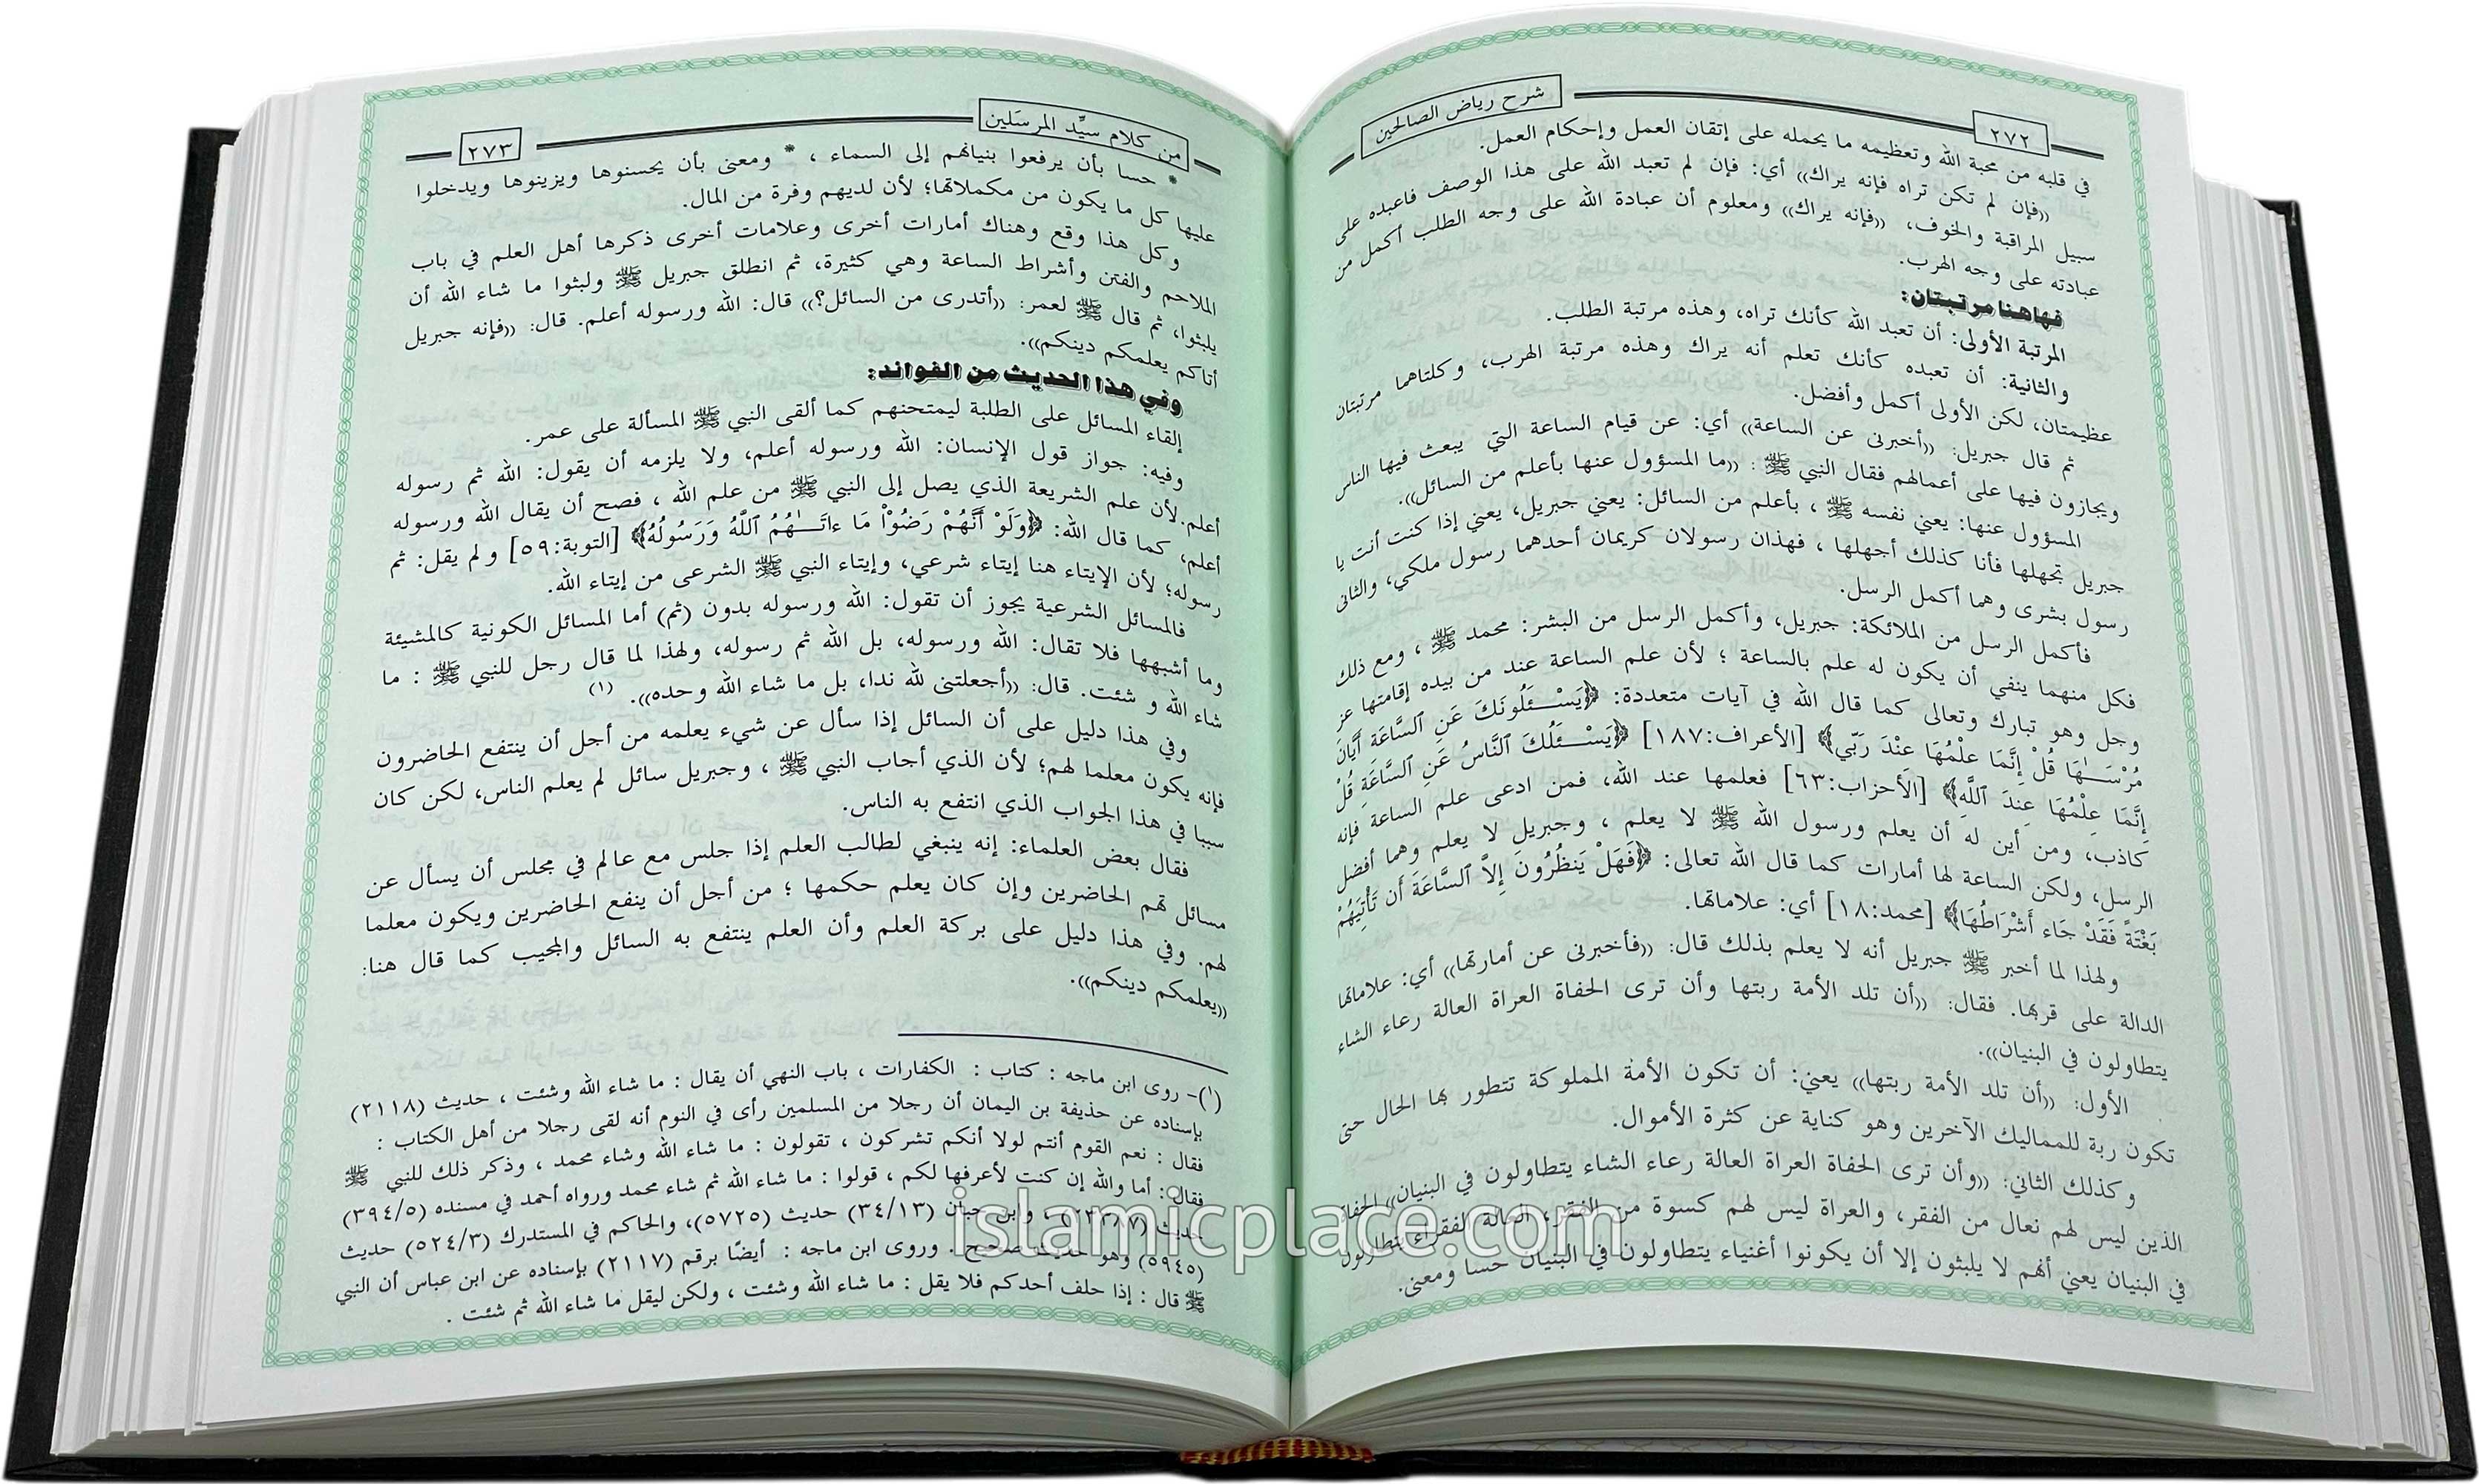 ٢٧٢
شرح رياض الصالحين
في قلبه من محبة الله وتعظيمه ما يحمله على إتقان العمل وإحكام العمل.
((فإن لم تكن تراه فإنه يراك)) أي: فإن لم تعبد الله على هذا الوصف فاعبده على
سبيل المراقبة والخوف، ((فإنه يراك)) ومعلوم أن عبادة الله على وجه الطلب أكمل من
عبادته على وجه الهرب.
فهاهنا مرتبتان:
المرتبة الأولى: أن تعبد الله كأنك تراه، وهذه مرتبة الطلب.
والثانية: أن تعبده كأنك تعلم أنه يراك وهذه مرتبة الهرب، وكلتاهما مرتبتان
عظيمتان، لكن الأولى أكمل وأفضل.
ثم قال جبريل: ((أخبرنى عن الساعة)) أي: عن قيام الساعة التي يبعث فيها الناس
ويجازون فيها على أعمالهم فقال النبي ﷺ : ((ما المسؤول عنها بأعلم من السائل)).
المسؤول عنها: يعني نفسه ﷺ ، بأعلم من السائل: يعني جبريل، يعني إذا كنت أنت يا
جبريل تجهلها فأنا كذلك أجهلها ، فهذان رسولان كريمان أحدهما رسول ملكي، والثانى
رسول بشرى وهما أكمل الرسل.
فأكمل الرسل من الملائكة: جبريل، وأكمل الرسل من البشر: محمد ﷺ ، ومع ذلك
فكل منهما ينفي أن يكون له علم بالساعة ؛ لأن علم الساعة عند من بيده إقامتها عز
وجل وهو تبارك وتعالى كما قال الله في آيات متعددة: ﴿يَسْـَٔلُونَكَ عَنِ ٱلسَّاعَةِ أَيَّانَ
مُرْسَـٰهَا قُلْ إِنَّمَا عِلْمُهَا عِنْدَ رَبِّي﴾ [الأعراف:١٨٧] ﴿يَسْـَٔلُكَ ٱلنَّاسُ عَنِ ٱلسَّاعَةِ قُلْ
إِنَّمَا عِلْمُهَا عِندَ ٱللَّهِ﴾ [الأحزاب:٦٣] فعلمها عند الله، فمن ادعى علم الساعة فإنه
كاذب، ومن أين له أن يعلم ورسول الله ﷺ لا يعلم ، وجبريل لا يعلم وهما أفضل
الرسل، ولكن الساعة لها أمارات كما قال الله تعالى: ﴿فَهَلْ يَنظُرُونَ إِلاَّ ٱلسَّاعَةَ أَن تَأْتِيَهُمْ
بَغْتَةً فَقَدْ جَاء أَشْرَاطُهَا﴾ [محمد:١٨] أي: علاماتها.
ولهذا لما أخبر ﷺ جبريل أنه لا يعلم بذلك قال: ((فأخبرنى عن أمارتها)) أي: علاماتها
الدالة على قربها. فقال: ((أن تلد الأمة ربتها وأن ترى الحفاة العراة العالة رعاء الشاء
يتطاولون في البنيان)).
الأول: ((أن تلد الأمة ربتها)) يعني: أن تكون الأمة المملوكة تتطور بها الحال حتى
تكون ربة للمماليك الآخرين وهو كناية عن كثرة الأموال.
وكذلك الثاني: ((وأن ترى الحفاة العراة العالة رعاء الشاء يتطاولون في البنيان)) الحفاة
الذين ليس لهم نعال من الفقر، والعراة ليس لهم كسوة من الفقر، العالة الفقراء يتطاولون
في البنيان يعني أنهم لا يلبثون إلا أن يكونوا أغنياء يتطاولون في البنيان حسا ومعنى.
من كلام سيِّد المرسَلين
٢٧٣
* حسا بأن يرفعوا بنيانهم إلى السماء ، * ومعنى بأن يحسنوها ويزينوها ويدخلوا
عليها كل ما يكون من مكملاتها؛ لأن لديهم وفرة من المال.
وكل هذا وقع وهناك أمارات أخرى وعلامات أخرى ذكرها أهل العلم في باب
الملاحم والفتن وأشراط الساعة وهي كثيرة، ثم انطلق جبريل ﷺ ولبثوا ما شاء الله أن
يلبثوا، ثم قال ﷺ لعمر: ((أتدرى من السائل؟)) قال: الله ورسوله أعلم. قال: ((فإنه جبريل
أتاكم يعلمكم دينكم)).
وفي هذا الحديث من الفوائد:
إلقاء المسائل على الطلبة ليمتحنهم كما ألقى النبي ﷺ المسألة على عمر.
وفيه: جواز قول الإنسان: الله ورسوله أعلم، ولا يلزمه أن يقول: الله ثم رسوله
أعلم.لأن علم الشريعة الذي يصل إلى النبي ﷺ من علم الله ، فصح أن يقال الله ورسوله
أعلم، كما قال الله: ﴿وَلَوْ أَنَّهُمْ رَضُوْاْ مَا ءاتَـٰهُمُ ٱللَّهُ وَرَسُولُهُ﴾ [التوبة:٥٩] ولم يقل: ثم
رسوله؛ لأن الإيتاء هنا إيتاء شرعي، وإيتاء النبي ﷺ الشرعى من إيتاء الله.
فالمسائل الشرعية يجوز أن تقول: الله ورسوله بدون (ثم) أما المسائل الكونية كالمشيئة
وما أشبهها فلا تقال: الله ورسوله، بل الله ثم رسوله، ولهذا لما قال رجل للنبي ﷺ : ما
شاء الله و شئت. قال: ((أجعلتنى لله ندا، بل ما شاء الله وحده)). (١)
وفي هذا دليل على أن السائل إذا سأل عن شيء يعلمه من أجل أن ينتفع الحاضرون
فإنه يكون معلما لهم؛ لأن الذي أجاب النبي ﷺ ، وجبريل سائل لم يعلم الناس، لكن كان
سببا في هذا الجواب الذي انتفع به الناس.
فقال بعض العلماء: إنه ينبغي لطالب العلم إذا جلس مع عالم في مجلس أن يسأل عن
مسائل تهم الحاضرين وإن كان يعلم حكمها ؛ من أجل أن ينفع الحاضرين ويكون معلما
لهم. وفي هذا دليل على بركة العلم وأن العلم ينتفع به السائل والمجيب كما قال هنا:
((يعلمكم دينكم)).
(١)- روى ابن ماجه : كتاب : الكفارات ، باب النهي أن يقال : ما شاء الله وشئت ، حديث (٢١١٨)
بإسناده عن حذيفة بن اليمان أن رجلا من المسلمين رأى في النوم أنه لقى رجلا من أهل الكتاب :
فقال : نعم القوم أنتم لولا أنكم تشركون ، تقولون : ما شاء الله وشاء محمد ، وذكر ذلك للنبي ﷺ
فقال: أما والله إن كنت لأعرفها لكم ، قولوا : ما شاء الله ثم شاء محمد ورواه أحمد في مسنده (٣٩٤/٥)
حديث ، وابن حبان (٣٤/١٣) حديث (٥٧٢٥)، والحاكم في المستدرك (٥٢٤/٣) حديث
(٥٩٤٥) وهو حديث صحيح . وروى ابن ماجه : أيضًا برقم (٢١١٧) بإسناده عن ابن عباس أن النبي
ﷺ قال : إذا حلف أحدكم فلا يقل : ما شاء الله وشئت ، ولكن ليقل ما شاء الله ثم شئت .
islamicplace.com